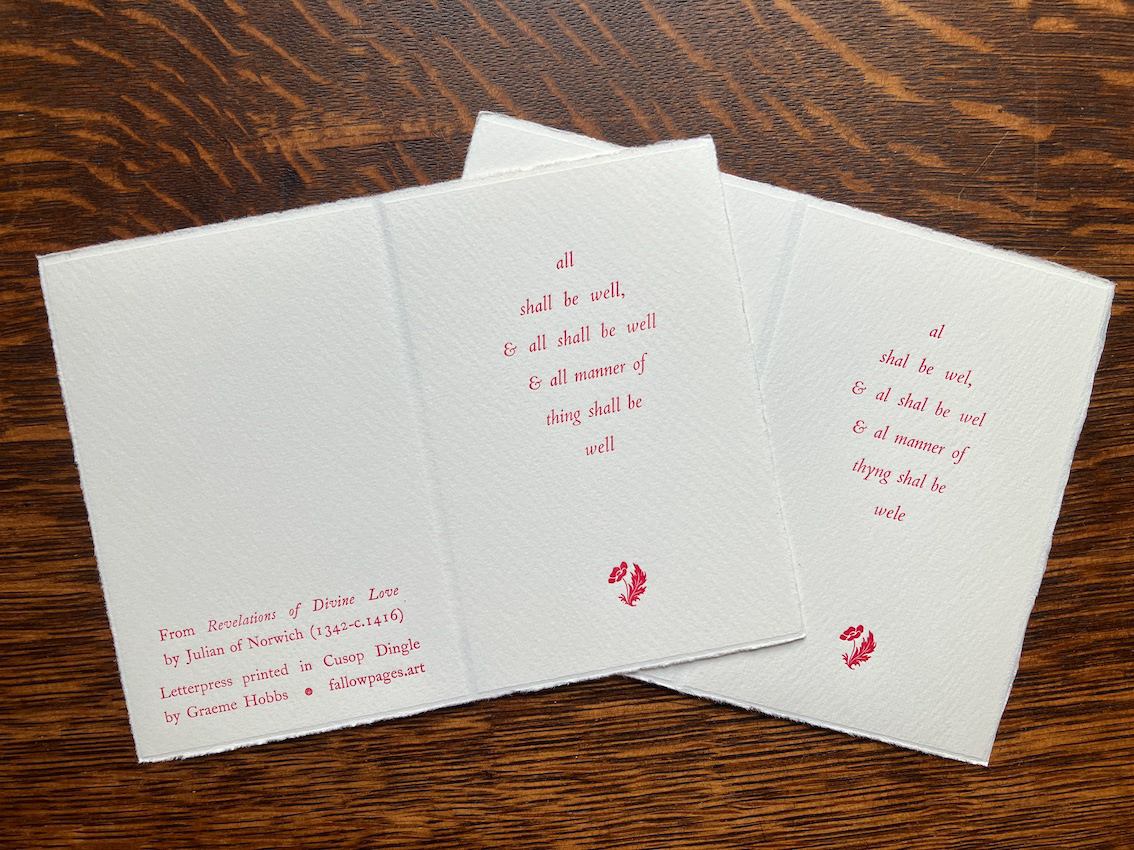 all
shall be well,
& all shall be well
& all manner of
thing shall be
well
From Revelations of Divine Love
by Julian of Norwich (1342-c.1416)
Letterpress printed in Cusop Dingle
by Graeme Hobbs • fallowpages.art
al
shal be wel,
& al shal be wel
& al manner of
thyng shal be
wele